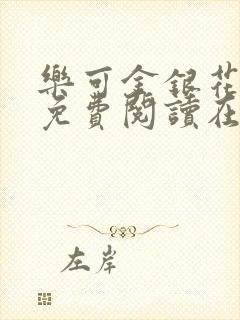 樂可金銀花
免費閱讀在
左岸